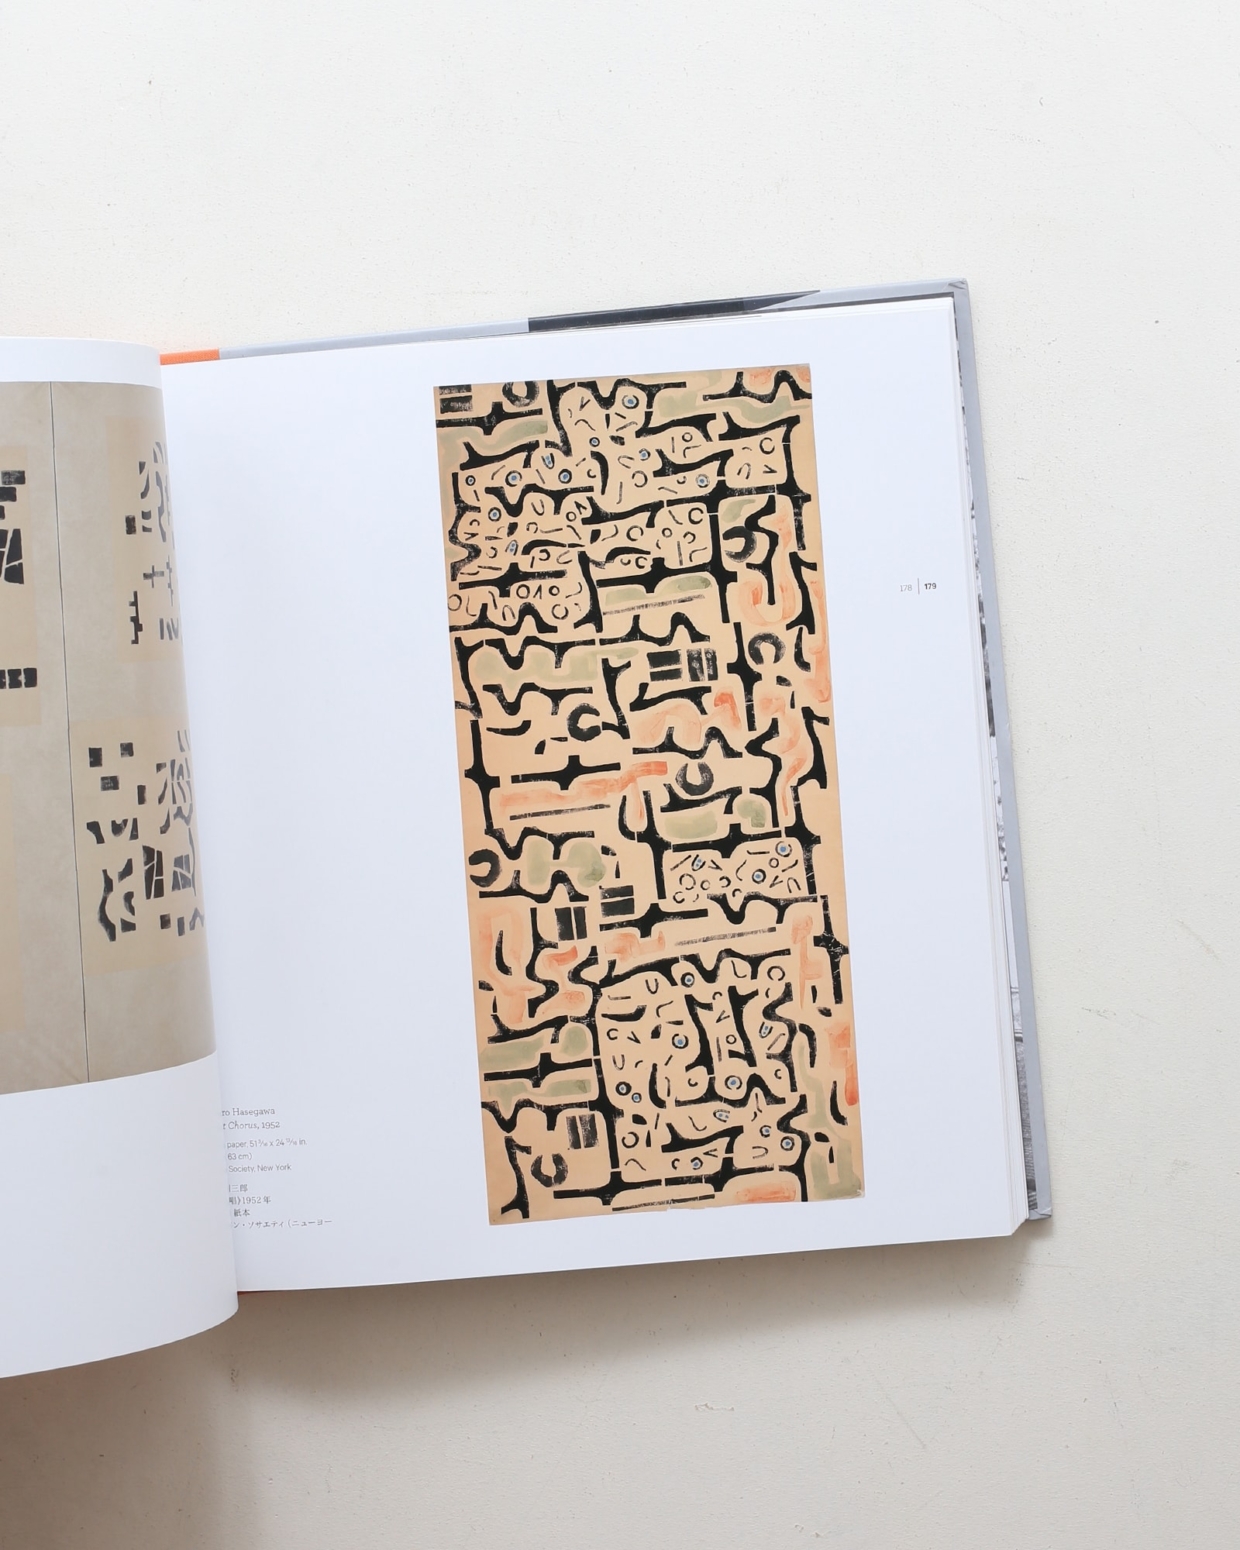 178 | 179
ro Hasegawa
t Chorus, 1952
paper, 51 5/16 x 24 13/16 in
63 cm)
Society, New York
三郎
唱》1952年
紙本
ン・ソサエティ（ニューヨー